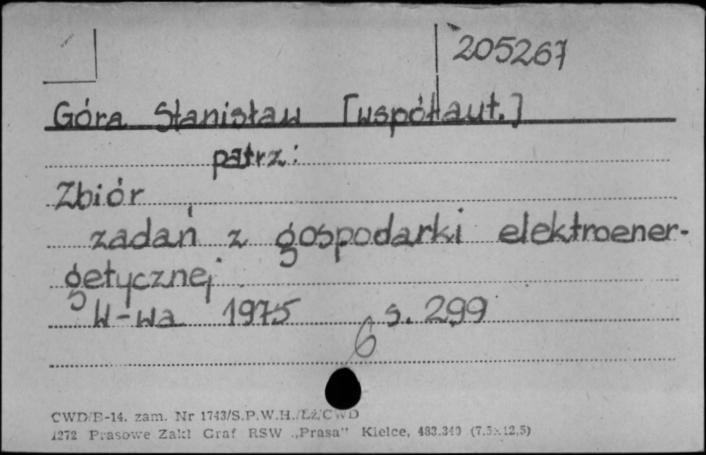 205267
Góra Stanisław [współaut.]
patrz:
Zbiór
zadań z gospodarki elektroener-
getycznej
W-wa 1975 s. 299
6
CWD/E-14. zam. Nr 1743/S.P.W.H./Łż/CWD
1272 Prasowe Zakł Graf RSW „Prasa" Kielce, 483.340 (7,5×12,5)